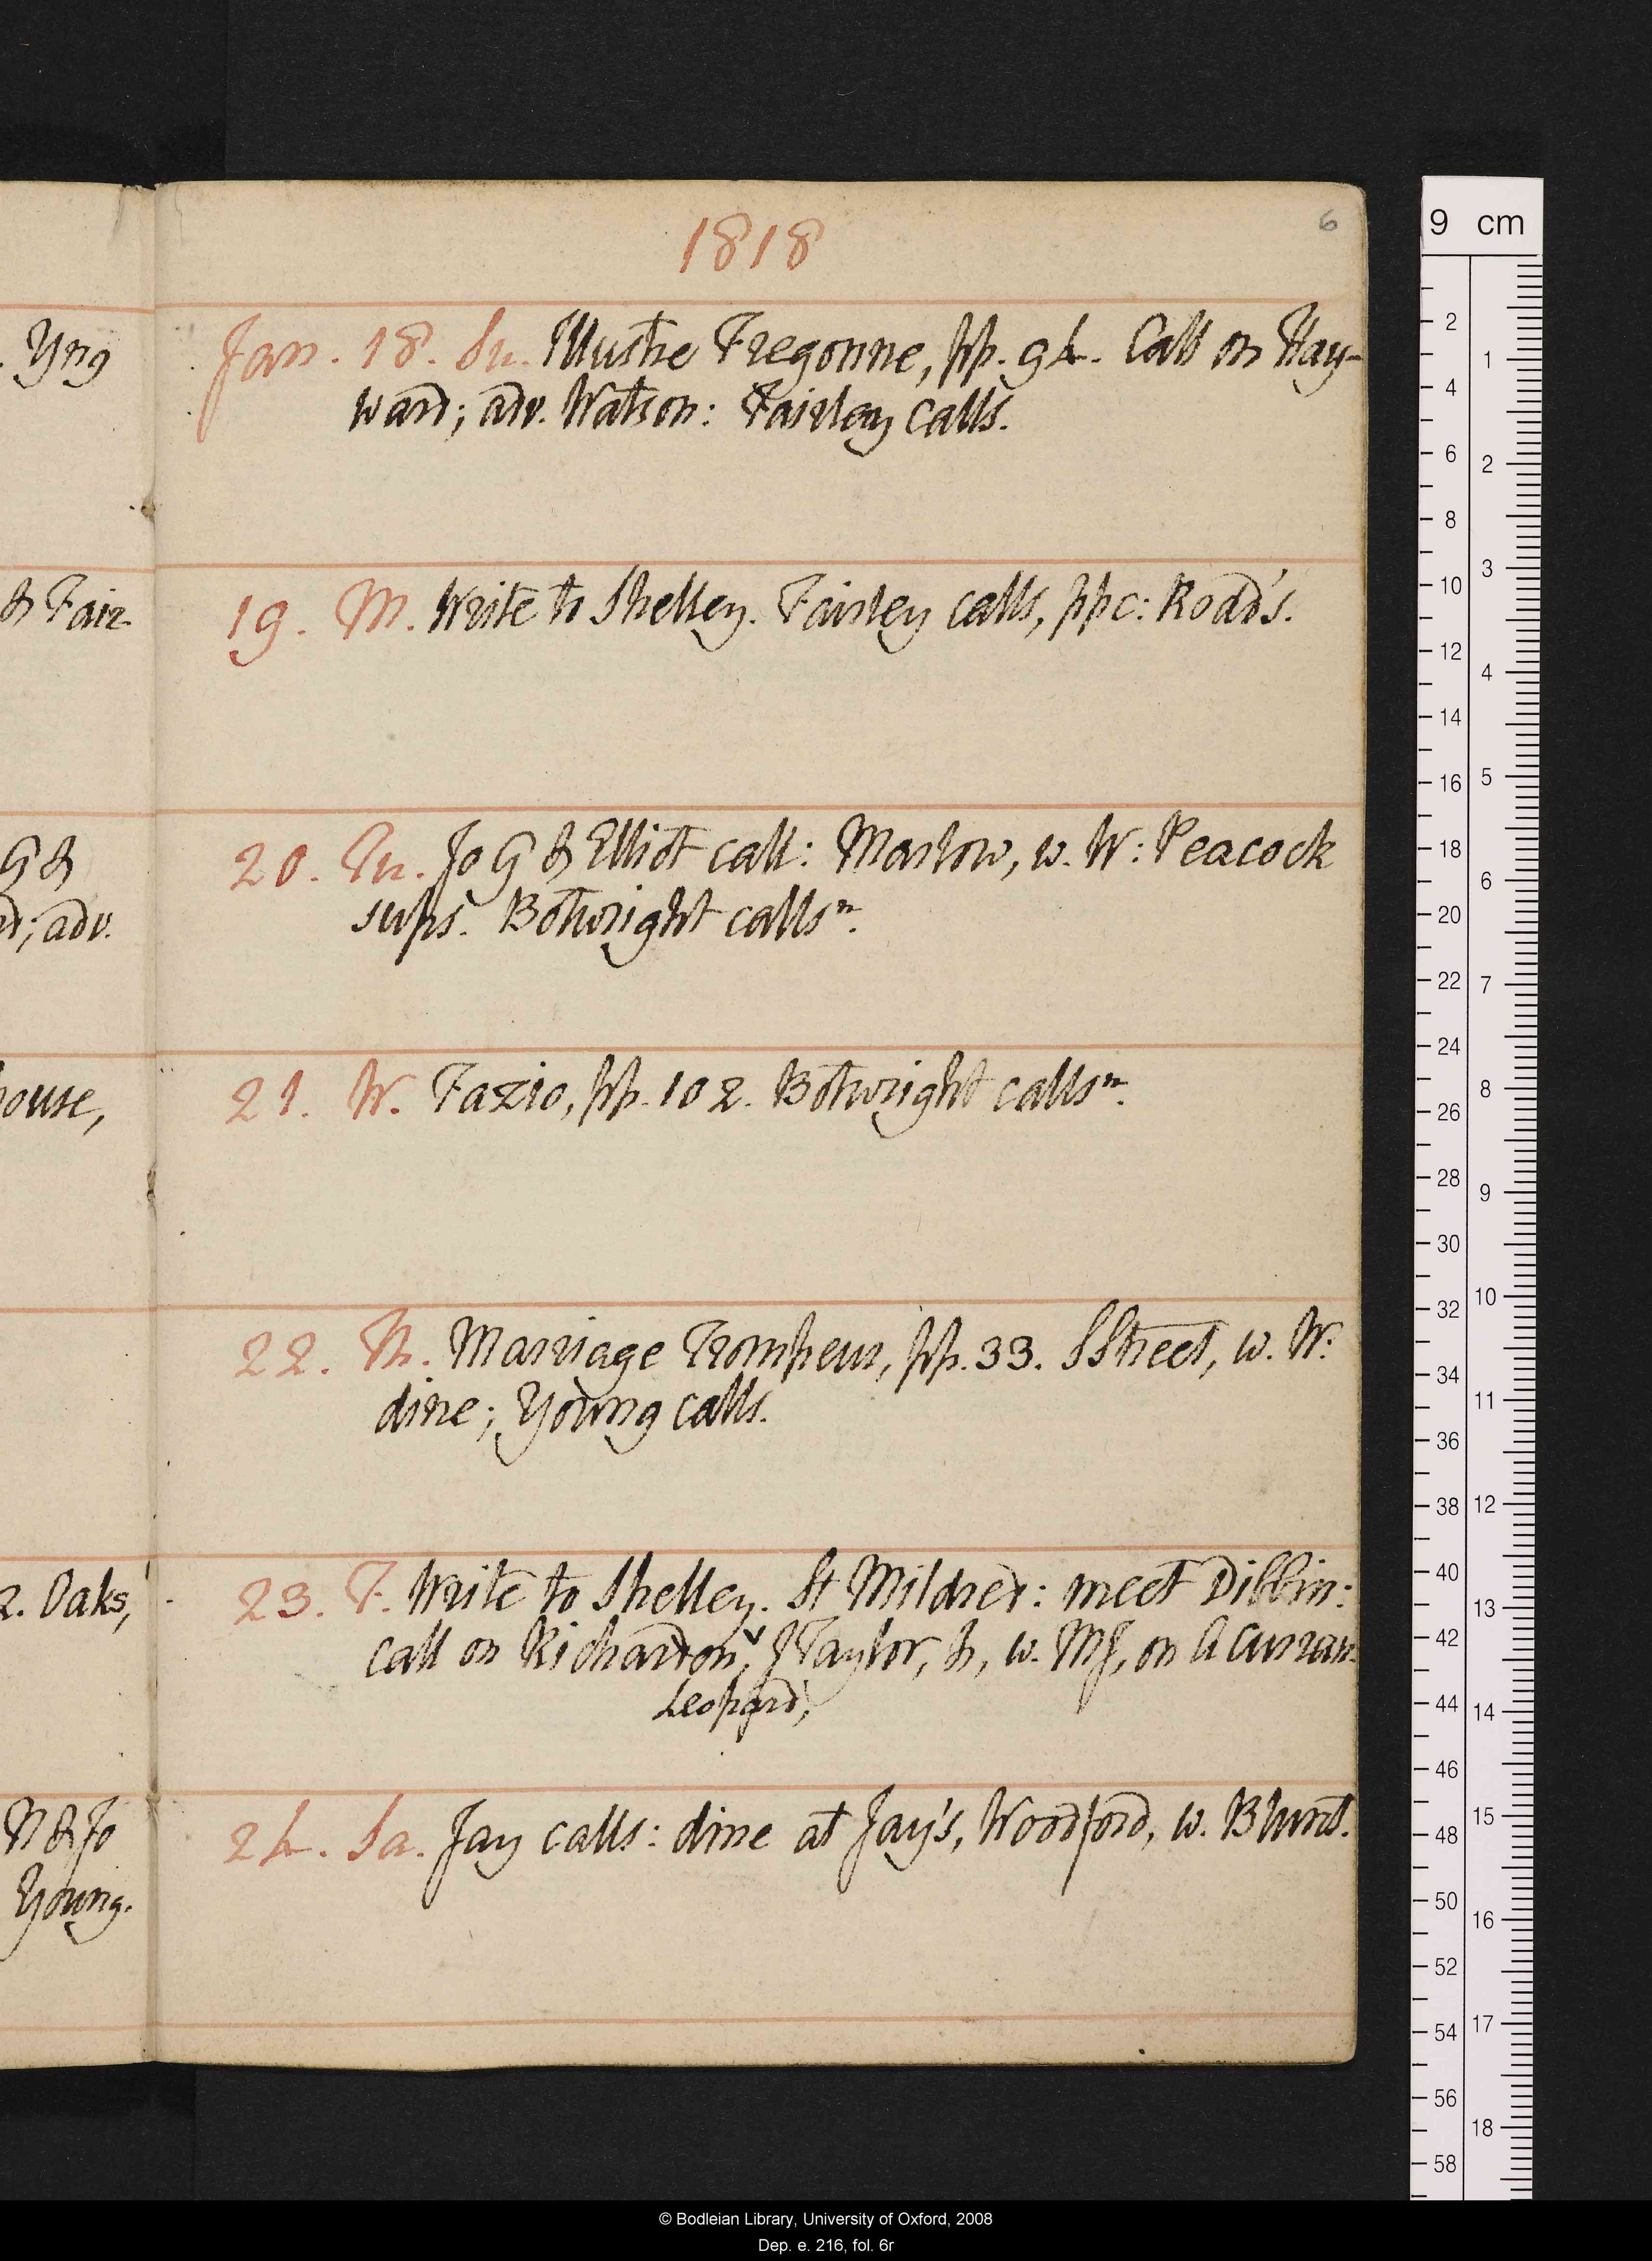 1818
6
. Yng
Jan. 18. Su. Illustre Fregonne, pp. 94. Call on Hay-
ward; adv. Watson: Fairley calls.
& Fair-
19. M. Write to Shelley. Fairley calls, ppc: Road's.
G &
20. Tu. Jo G & Elliot call: Marlow, w. W: Peacock
d; adv.
sups. Botwright calls n.
house,
21. W. Fazio, pp. 102. Botwright calls n.
22. Th. Marriage Trompeur, pp. 33. SStreet, w. W:
dine; Young calls.
2. Oaks,
23. F. Write to Shelley. St Mildred: meet Dibbin:
call on Richardson, JTaylor, n, w. MJ, on A Curran.
Leopard,
N & Jo
24. Sa. Jay calls: dine at Jay's, Woodford, w. Blunt.
Young.
9 cm
2 4 6 8 10 12 14 16 18 20 22 24 26 28 30 32 34 36 38 40 42 44 46 48 50 52 54 56 58
1 2 3 4 5 6 7 8 9 10 11 12 13 14 15 16 17 18
© Bodleian Library, University of Oxford, 2008
Dep. e. 216, fol. 6r